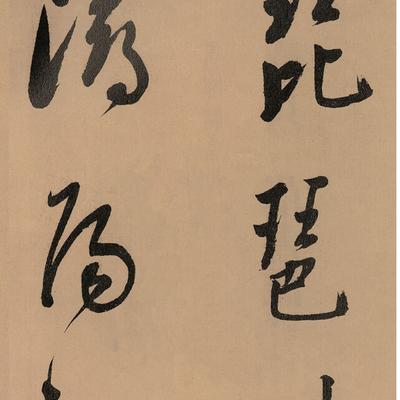 琵琶
潯陽